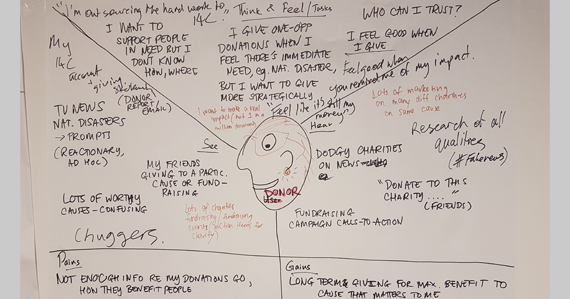 "I'm outsourcing the hard work to I4C"
Think & Feel / Tasks
WHO CAN I TRUST?
I WANT TO
SUPPORT PEOPLE
IN NEED BUT I
DON'T KNOW
HOW, WHERE
I GIVE ONE-OFF
DONATIONS WHEN I
FEEL THERE'S IMMEDIATE
NEED, eg. NAT. DISASTER,
BUT I WANT TO GIVE
MORE STRATEGICALLY.
I FEEL GOOD WHEN
I GIVE
Feel good when
you remind me of my impact.
My
I4C
account
+ giving
statement
(DONOR
REPORT
EMAIL)
I want to make a real
impact
"Feel like it's still my
money"
Lots of marketing
on many diff charities
on same cause
TV NEWS
NAT. DISASTERS
→ PROMPTS
(REACTIONARY,
AD HOC)
See
Hear
MY FRIENDS
GIVING TO A PARTIC.
CAUSE OR FUND-
RAISING
LOTS OF WORTHY
CAUSES - CONFUSING
Chuggers.
Lots of charities
DONOR
User
DODGY CHARITIES
ON NEWS
Research of all
qualities
(#Fakenews)
"DONATE TO THIS
CHARITY .... "
(FRIENDS)
FUNDRAISING
CAMPAIGN CALLS-TO-ACTION
Pains
NOT ENOUGH INFO RE MY DONATIONS GO,
HOW THEY BENEFIT PEOPLE
Gains
LONG TERM GIVING FOR MAX. BENEFIT TO
CAUSE THAT MATTERS TO ME